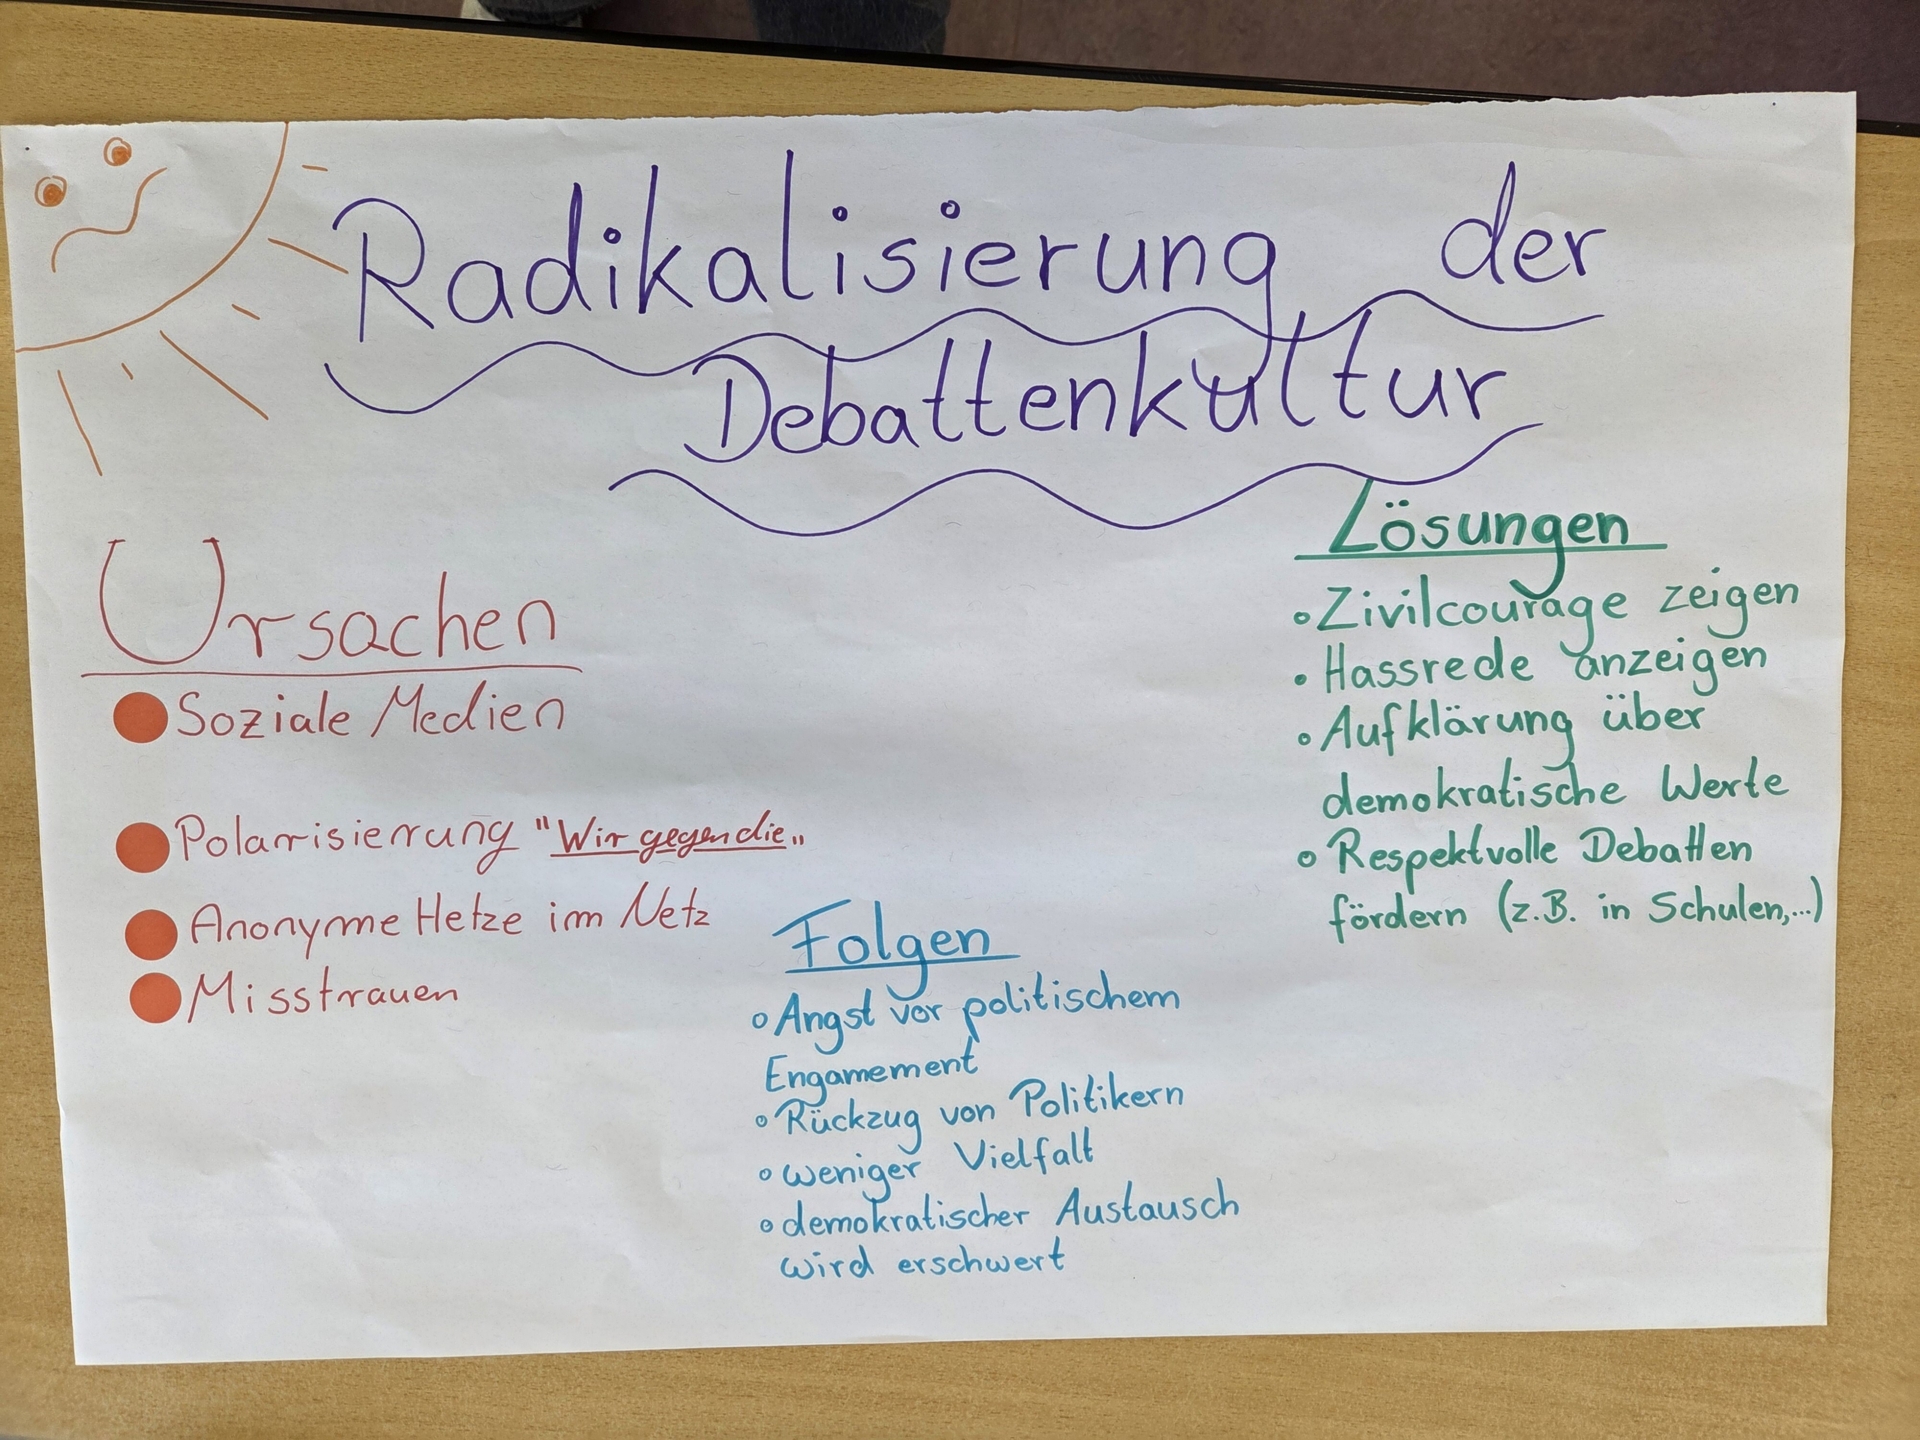 Radikalisierung der
Debattenkultur
Ursachen
Soziale Medien
Polarisierung "Wir gegen die"
Anonyme Hetze im Netz
Misstrauen
Folgen
Angst vor politischem
Engamement
Rückzug von Politikern
weniger Vielfalt
demokratischer Austausch
wird erschwert
Lösungen
Zivilcourage zeigen
Hassrede anzeigen
Aufklärung über
demokratische Werte
Respektvolle Debatten
fördern (z.B. in Schulen,...)